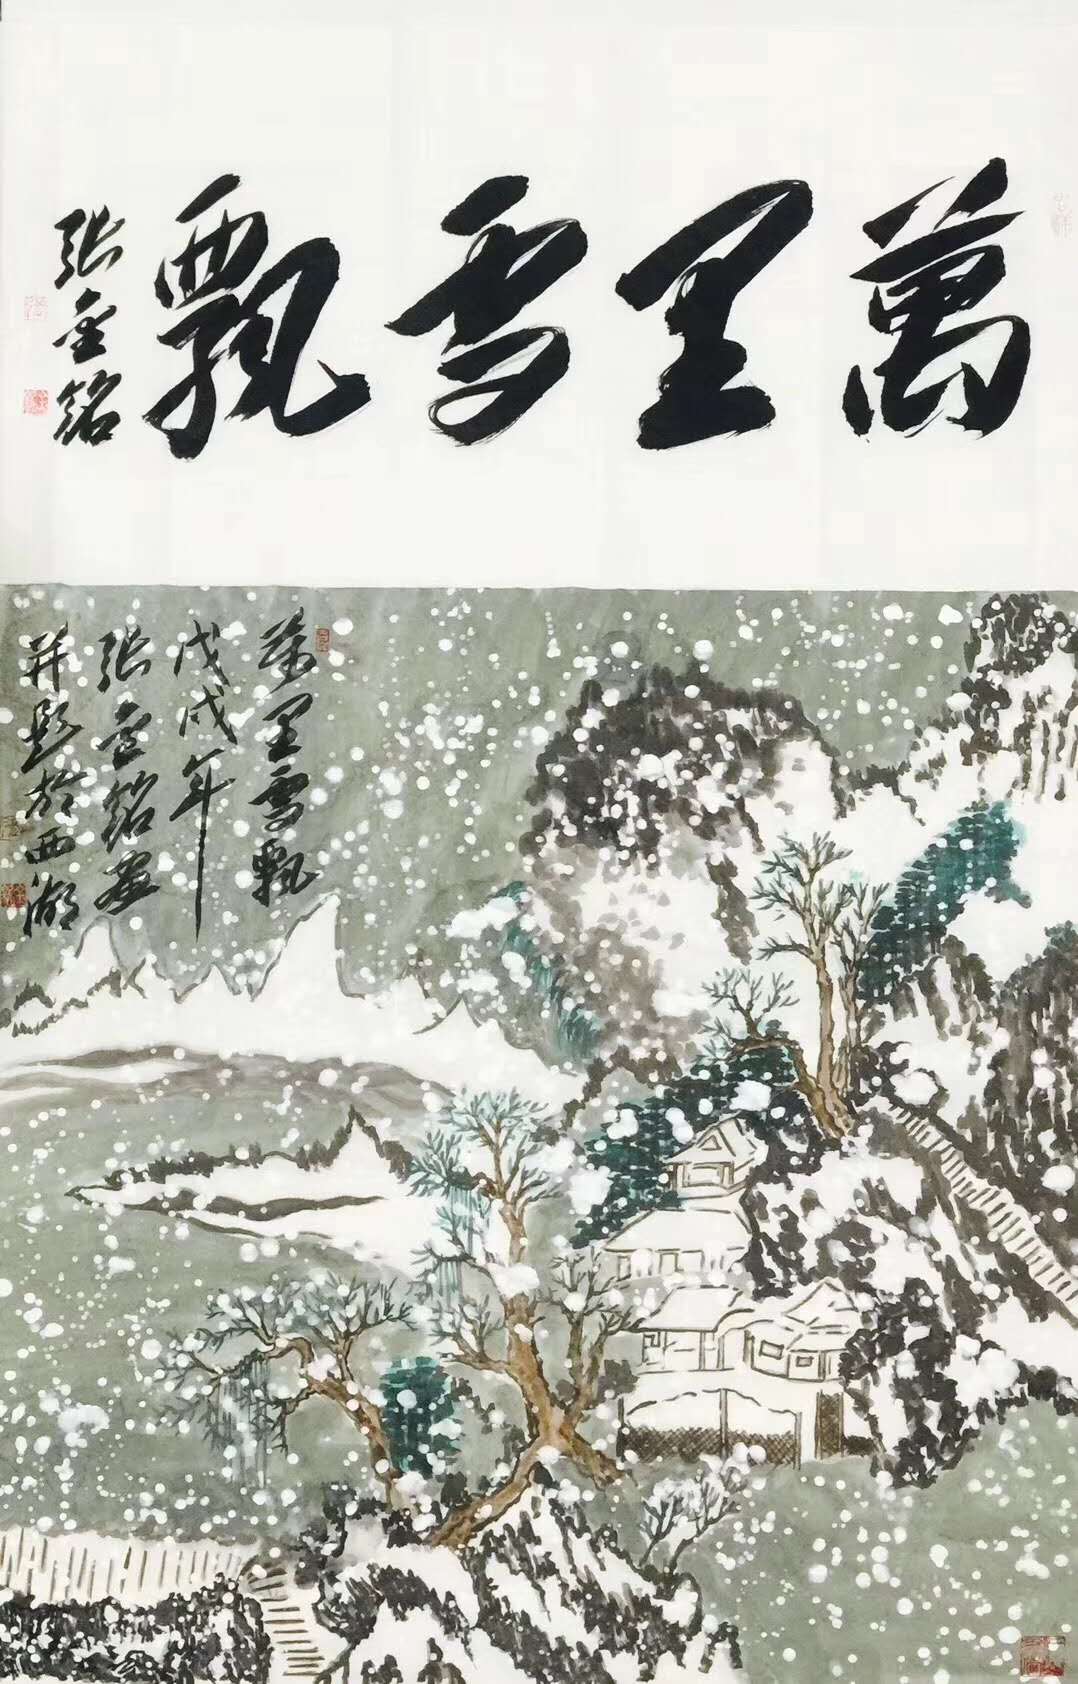 萬里雪飄
張金銘
萬里雪飄
戊戌年
張金銘畫
并題於西湖